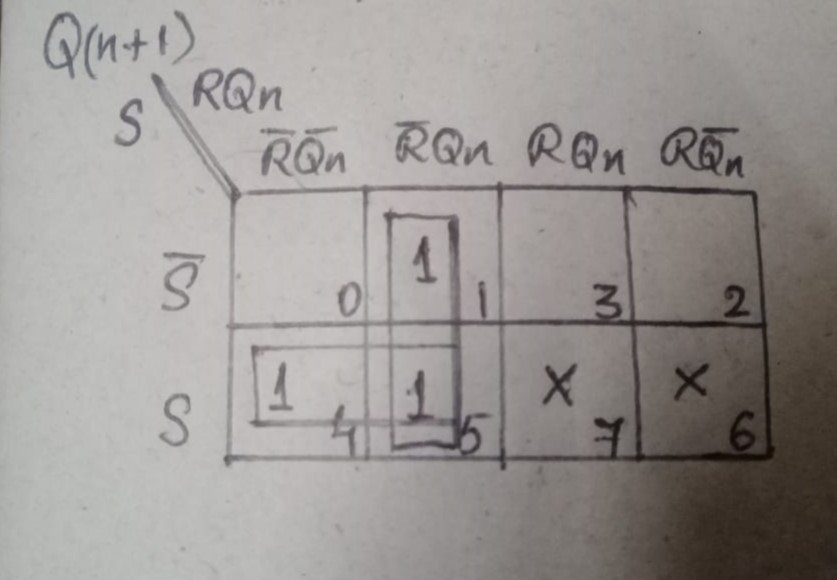 Q(n+1)
S RQn
R̅Q̅n R̅Qn RQn RQ̅n
S̅ 0 1 1 3 2
S 1 4 1 5 X 7 X 6